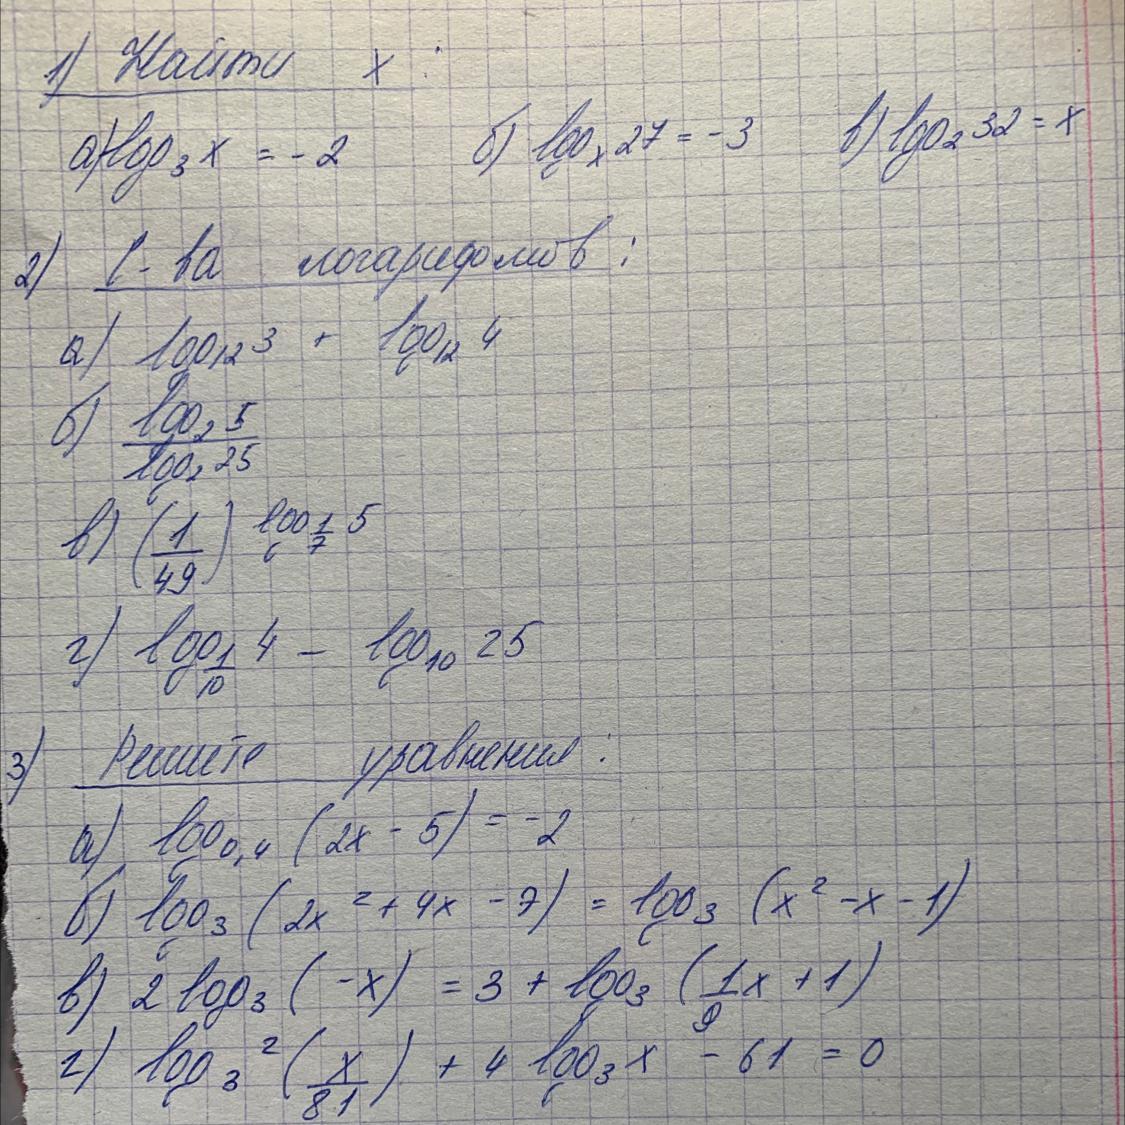 1) Найти x:
а) log₃ x = -2 б) logₓ 27 = -3 в) log₂ 32 = x
2) С-ва логарифмов:
а) log₁₂ 3 + log₁₂ 4
б) log₂ 5 / log₂ 25
в) (1/49)^(log_(1/7) 5)
г) log_(1/10) 4 - log₁₀ 25
3) Решите уравнения:
а) log₀,₄ (2x - 5) = -2
б) log₃ (2x² + 4x - 7) = log₃ (x² - x - 1)
в) 2 log₃ (-x) = 3 + log₃ (1/9 x + 1)
г) log₃² (x/81) + 4 log₃ x - 61 = 0